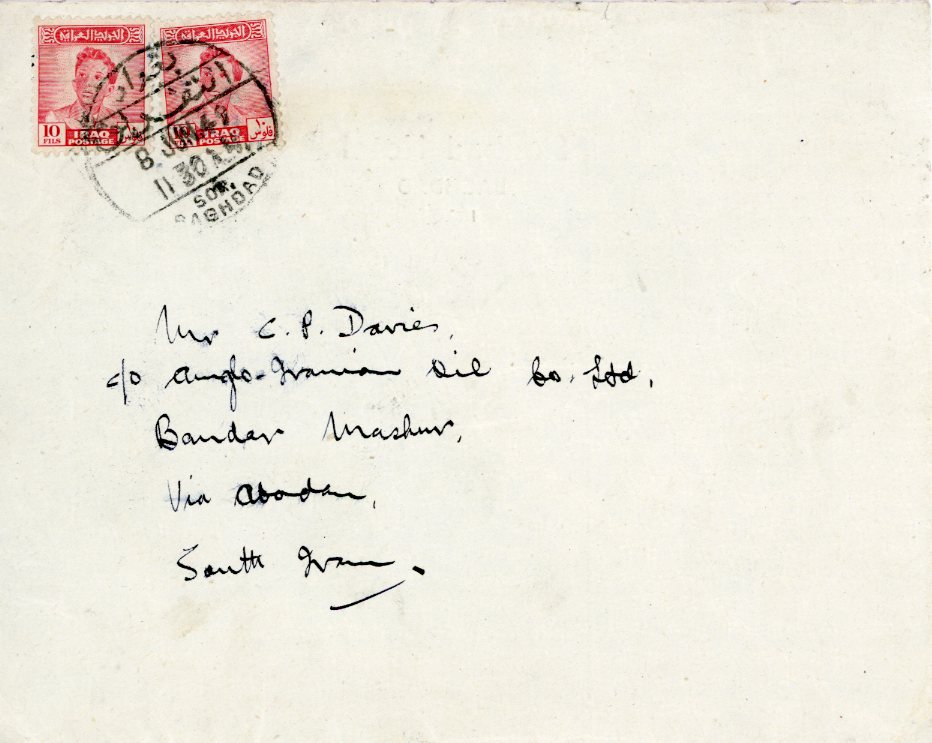 الدولة العراقية الدولة العراقية
10 FILS IRAQ POSTAGE
IRAQ POSTAGE ١٠ فلوس
بغداد
8 JUN 49
11 30 A.M.
SOR.
BAGHDAD
Mr C. P. Davies,
c/o Anglo-Iranian Oil Co. Ltd.
Bandar Mashur,
Via Abadan,
South Iran.